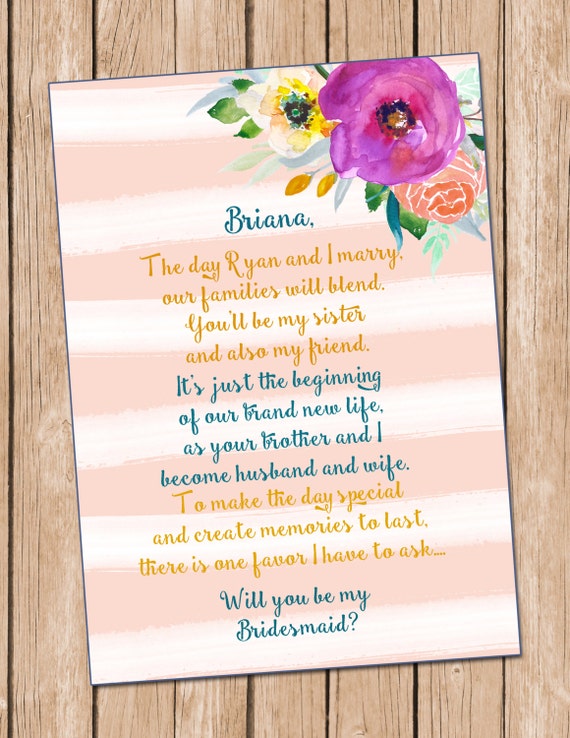 Briana,
The day Ryan and I marry,
our families will blend.
You'll be my sister
and also my friend.
It's just the beginning
of our brand new life,
as your brother and I
become husband and wife.
To make the day special
and create memories to last,
there is one favor I have to ask....
Will you be my
Bridesmaid?